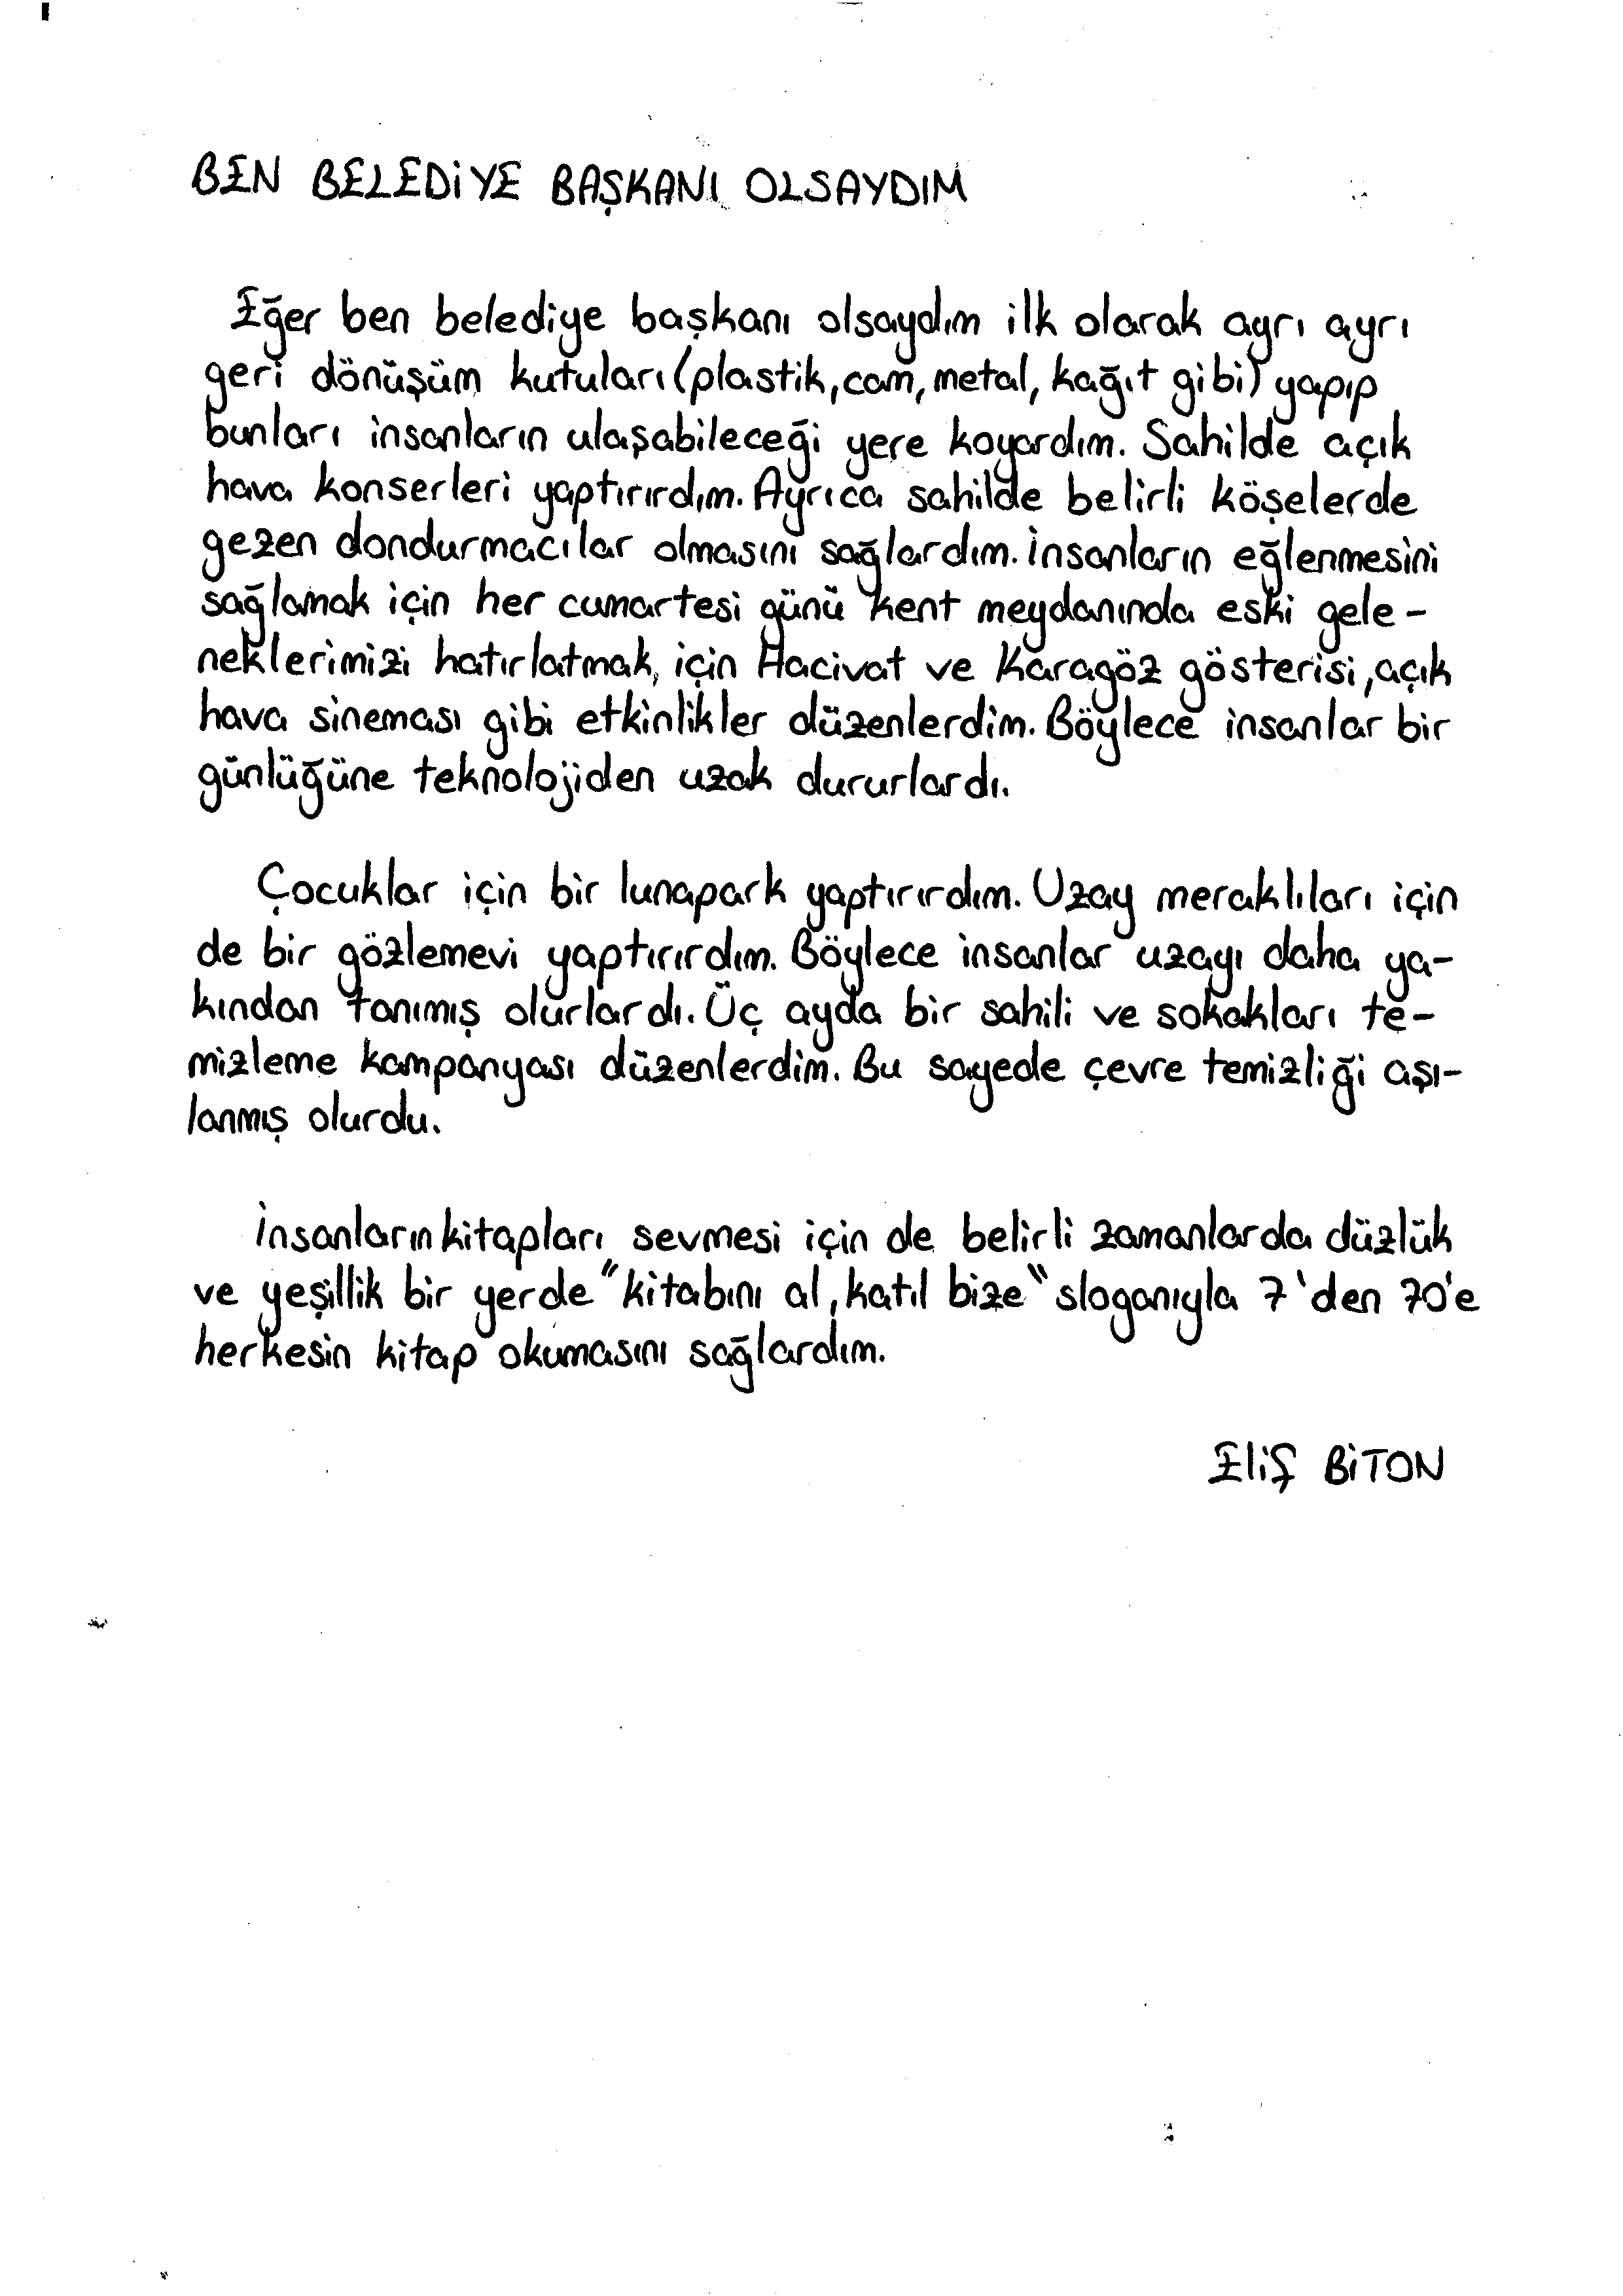 BEN BELEDİYE BAŞKANI OLSAYDIM
Eğer ben belediye başkanı olsaydım ilk olarak ayrı ayrı
geri dönüşüm kutuları (plastik, cam, metal, kağıt gibi) yapıp
bunları insanların ulaşabileceği yere koyardım. Sahilde açık
hava konserleri yaptırırdım. Ayrıca sahilde belirli köşelerde
gezen dondurmacılar olmasını sağlardım. İnsanların eğlenmesini
sağlamak için her cumartesi günü kent meydanında eski gele-
neklerimizi hatırlatmak, için Hacivat ve Karagöz gösterisi, açık
hava sineması gibi etkinlikler düzenlerdim. Böylece insanlar bir
günlüğüne teknolojiden uzak dururlardı.
Çocuklar için bir lunapark yaptırırdım. Uzay meraklıları için
de bir gözlemevi yaptırırdım. Böylece insanlar uzayı daha ya-
kından tanımış olurlardı. Üç ayda bir sahili ve sokakları te-
mizleme kampanyası düzenlerdim. Bu sayede çevre temizliği aşı-
lanmış olurdu.
İnsanların kitapları sevmesi için de belirli zamanlarda düzlük
ve yeşillik bir yerde "kitabını al, katıl bize" sloganıyla 7'den 70'e
herkesin kitap okumasını sağlardım.
Elif BİTON